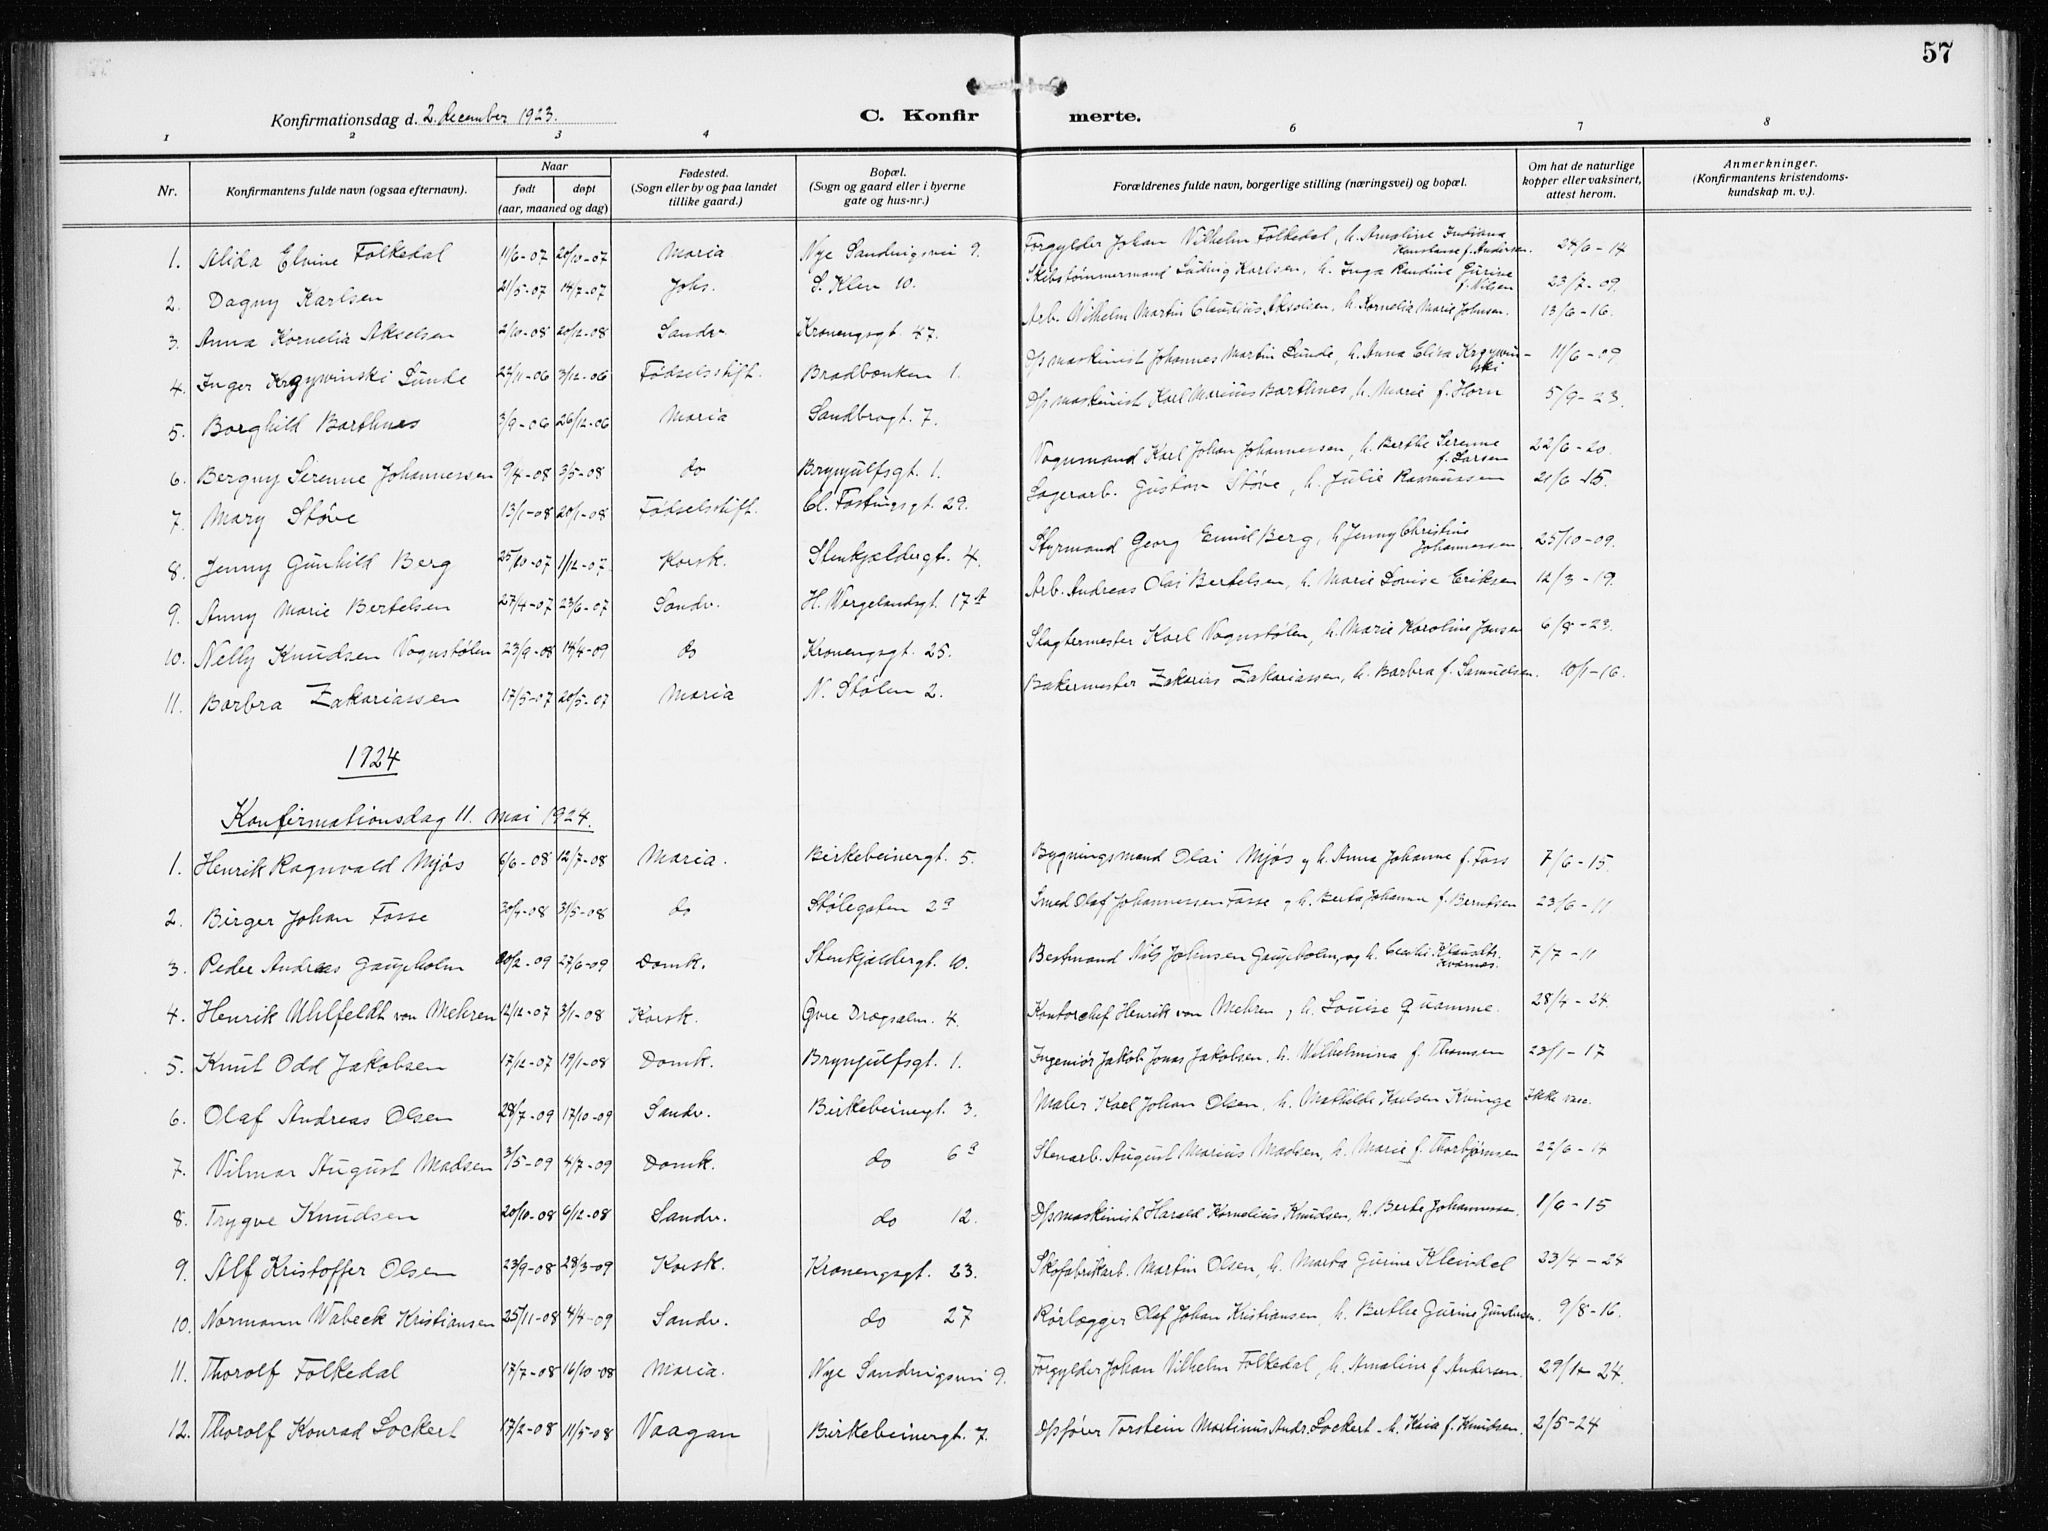 57
Konfirmationsdag d. 2. december 1923.
C. Konfirmerte.
1 2 3 4 6 7 8
Nr. Konfirmantens fulde navn (ogsaa efternavn). Naar født døpt (aar, maaned og dag) Fødested. (Sogn eller by og paa landet tillike gaard.) Bopæl. (Sogn og gaard eller i byerne gate og hus-nr.) Forældrenes fulde navn, borgerlige stilling (næringsvei) og bopæl. Om hat de naturlige kopper eller vaksinert, attest herom. Anmerkninger. (Konfirmantens kristendoms-kundskap m. v.).
1. Alida Elvine Folkedal 11/6-07 20/10-07 Maria Nye Sandvigsvei 9. Forgylder Johan Vilhelm Folkedal, h. Amaline Indiana Konstanse f. Andersen. 24/6-14
2. Dagny Karlsen 21/5-07 14/7-07 Johs. S. Klev 10. Skibstømmermand Ludvig Karlsen, h. Inga Randine Gurine f. Nilsen 23/7-09
3. Anna Kornelia Akselsen 2/10-08 20/12-08 Sandv. Kronengsgt. 47. Arb. Wilhelm Martin Claudius Akselsen, h. Kornelia Marie Johnsen. 13/6-16.
4. Inger Krzywinski Lunde 22/11-06 3/12-06 Fødselsstift. Bradbænken 1. D/s maskinist Johannes Martin Lunde, h. Anna Elisa Krzywinski 11/6-09
5. Borghild Barthnes 3/9-06 26/12-06 Maria Sandbrogt. 7. D/s maskinist Karl Marius Barthnes, h. Marie f. Horn 5/9-23.
6. Bergny Serenne Johannessen 9/4-08 3/5-08 do Brynjulfsgt. 1. Vognmand Karl Johan Johannessen, h. Berthe Serenne f. Larsen 22/6-20.
7. Mary Støve 13/1-08 20/1-08 Fødselsstift. Cl. Fastingsgt. 29. Lagerarb. Gustav Støve, h. Julie Rasmussen 21/6-15.
8. Jenny Gunhild Berg 25/10-07 1/12-07. Korsk. Stenkjeldergt. 4. Styrmand Georg Emil Berg, h. Jenny Christine Johannessen. 25/10-09.
9. Anny Marie Bertelsen 27/4-07 23/6-07 Sandv. H. Wergelandsgt. 17 A Arb. Andreas Olai Bertelsen, h. Marie Lovise Eriksen 12/3-19.
10. Nelly Knudsen Vognstølen 23/9-08 14/4-09 do Kronengsgt. 25. Slagtermester Karl Vognstølen, h. Marie Karoline Jansen 6/8-23.
11. Barbra Zakariassen 17/5-07 20/5-07 Maria N. Stølen 2. Bakermester Zakarias Zakariassen, h. Barbra f. Samuelsen. 10/1-16.
1924
Konfirmationsdag 11. mai 1924.
1. Henrik Ragnvald Mjøs 6/6-08 12/7-08 Maria. Birkebeinergt. 5. Bygningsmand Olai Mjøs og h. Anna Johanne f. Foss 7/6-15.
2. Birger Johan Fosse 30/4-08 31/5-08 do Stølegaten 2a Smed Olaf Johannessen Fosse og h. Berta Johanna f. Berntsen 23/6-11.
3. Peder Andreas Gaupholm 20/2-09 27/6-09 Domk. Stenkjeldergt. 10. Bestmand Nils Johnsen Gaupholm, og h. 7/7-11
4. Henrik Uhlfeldt von Mehren 12/12-07 3/1-08 Korsk. Øvre Dragsalm. 4. Kontorchef Henrik von Mehren, h. Louise Quamme. 28/4-24.
5. Knut Odd Jakobsen 17/12-07 19/1-08 Domk. Brynjulfsgt. 1. Ingeniør Jakob Jonas Jakobsen, h. Wilhelmina f. Thomsen 23/1-17
6. Olaf Andreas Olsen 28/7-09 17/10-09 Sandv. Birkebeinergt. 3. Maler Karl Johan Olsen, h. Mathilde Karlsen Kvinge Ikke vacc.
7. Vilmar August Madsen 3/5-09 4/7-09 Domk. do 6a Stenarb. August Marius Madsen, h. Marie f. Thorbjørnsen 22/6-14
8. Trygve Knudsen 20/10-08 6/12-08 Sandv. do 12. D/s maskinist Harald Kornelius Knudsen, h. Berte Johannessen. 1/6-15
9. Alf Kristoffer Olsen 23/9-08 28/3-09 Korsk. Kronengsgt. 23. Skofabrikarb. Martin Olsen, h. Marta Gurine Kleivdal 23/4-24
10. Normann Wabeck Kristiansen 25/11-08 4/4-09 Sandv. do 27 Rørlægger Olaf Johan Kristiansen, h. Berthe Gurine Gundersen. 9/8-16.
11. Thorolf Folkedal 17/7-08 16/10-08 Maria. Nye Sandvigsvei 9. Forgylder Johan Vilhelm Folkedal, h. Amaline f. Andersen. 29/4-24.
12. Thorolf Konrad Lockert 17/2-08 11/5-08 Vaagan Birkebeinergt. 7. D/sfører Torstein Martinus Andr. Lockert - h. Kaia f. Knudsen. 2/5-24